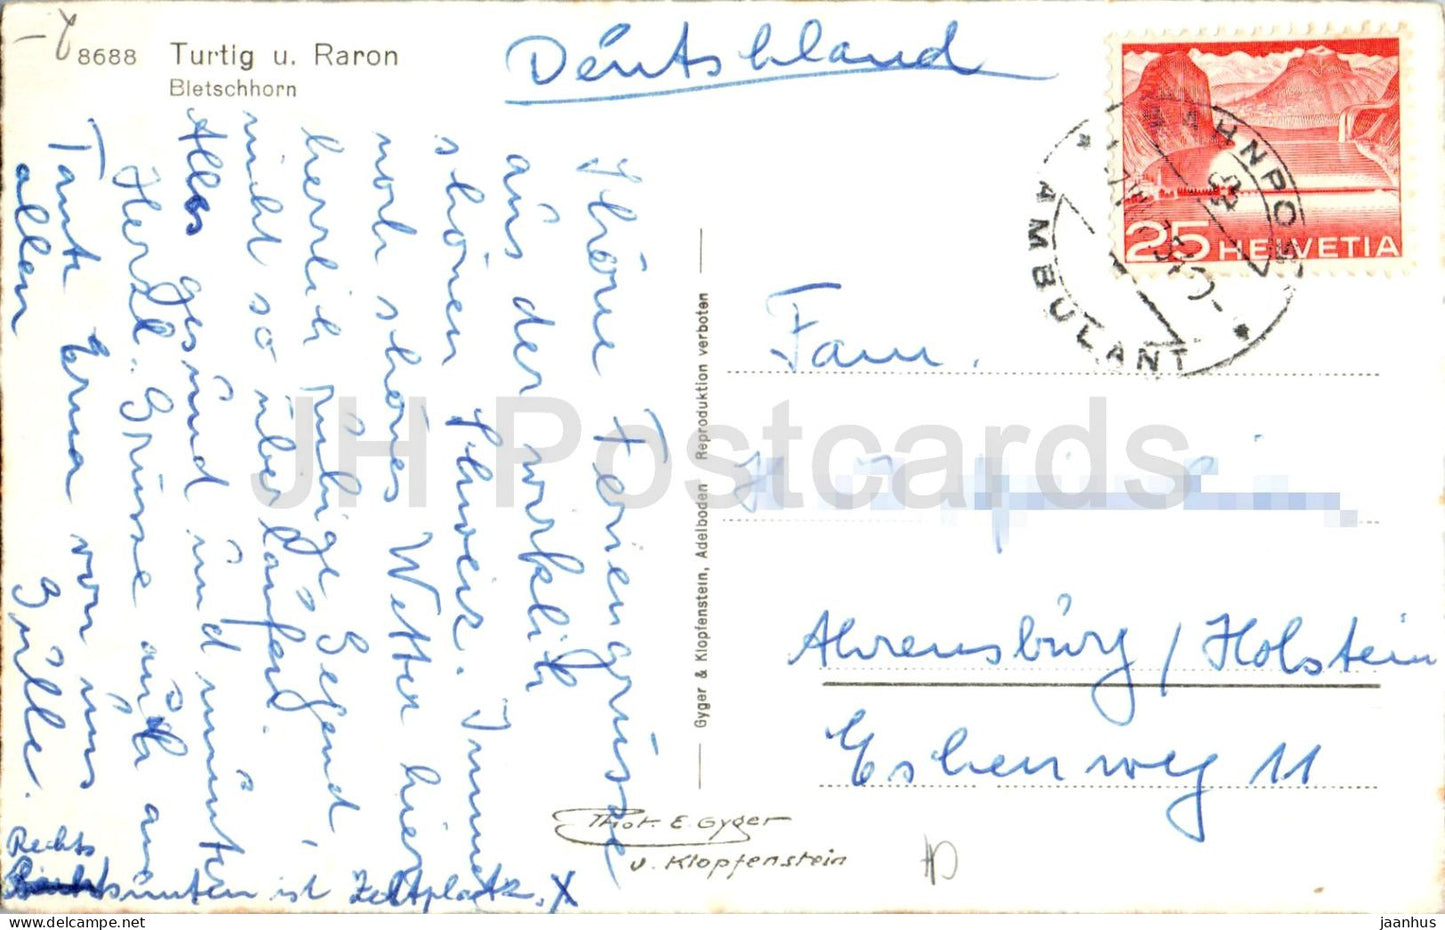 8688 Turtig u. Raron
Bietschhorn
Deutschland
Schöne Feriengrüsse
aus der wirklich
schönen Schweiz. Immer
noch schönes Wetter hier
herrlich ruhige Gegend
nicht so überlaufen.
Alles gesund und munter
Herzl. Grüsse auch an
Tante Erna von uns
allen Grülle.
Rechts
unten ist Zeltplatz. X
Gyger & Klopfenstein, Adelboden Reproduktion verboten
Phot. E. Gyger
u. Klopfenstein
25 HELVETIA
BAHNPOST
AMBULANT
Fam.
Ahrensburg / Holstein
Eschenweg 11
JH Postcards
delcampe.net
jaanhus